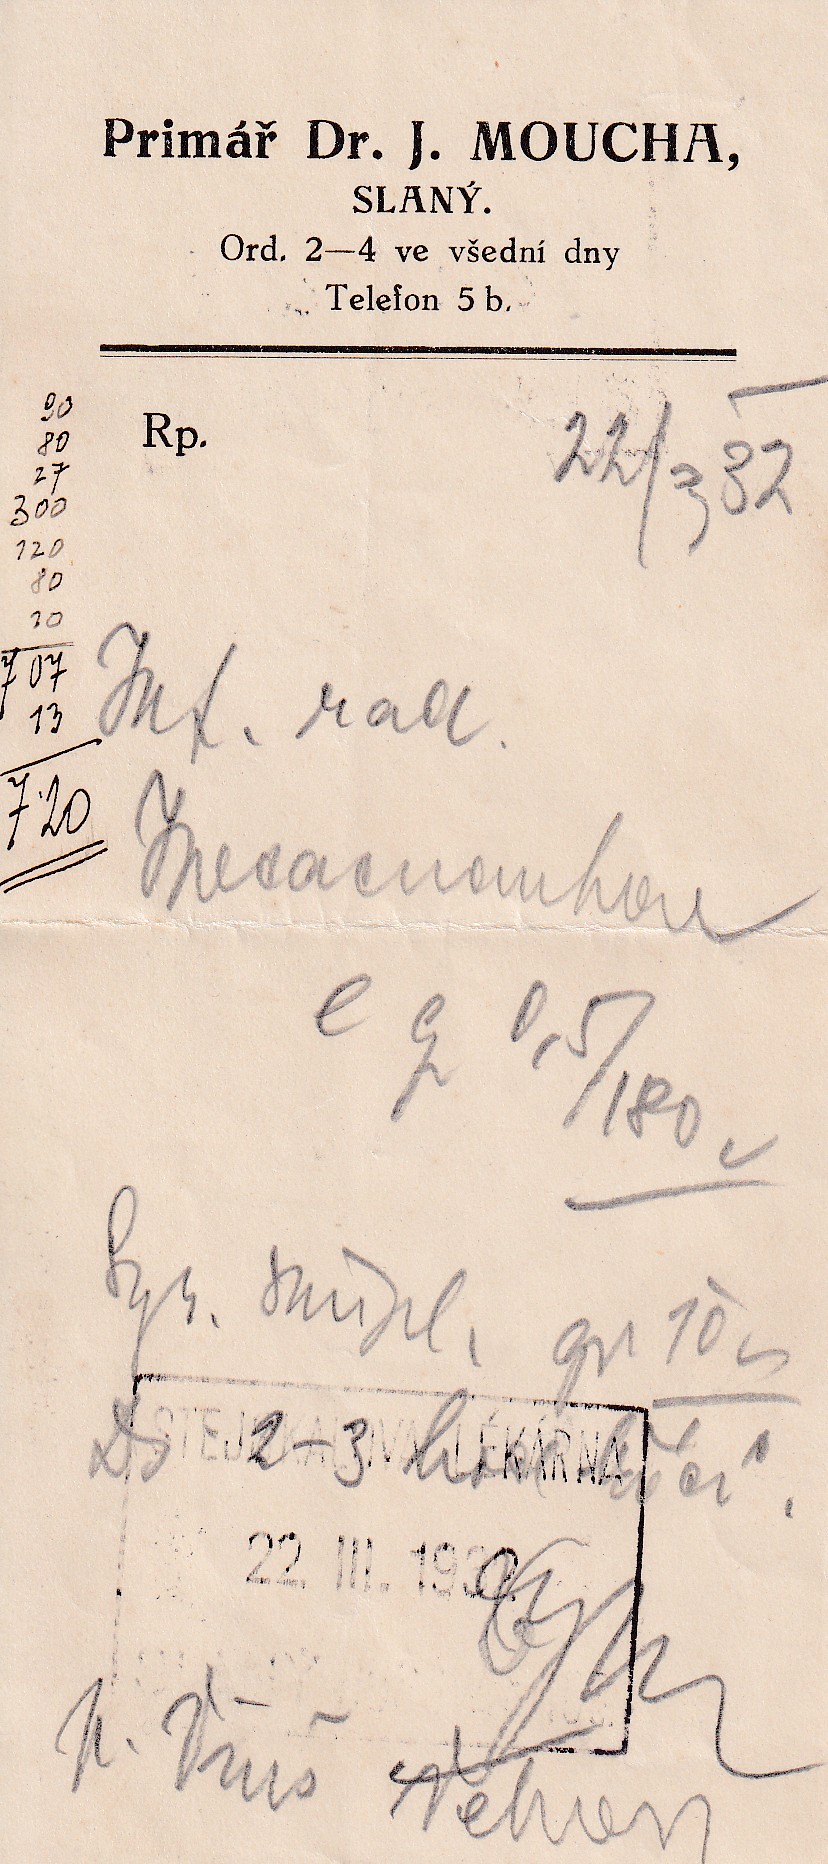 Primář Dr. J. MOUCHA,
SLANÝ.
Ord. 2—4 ve všední dny
Telefon 5 b.
Rp.
22/3 32
90
80
27
300
120
80
10
707
13
7·20
Inf. rad.
Ipecacuanhae
e g 0,5/180
Syr. simpl. gr 10
DS 2–3 lžíce
LÉKÁRNA
22. III. 193
p.